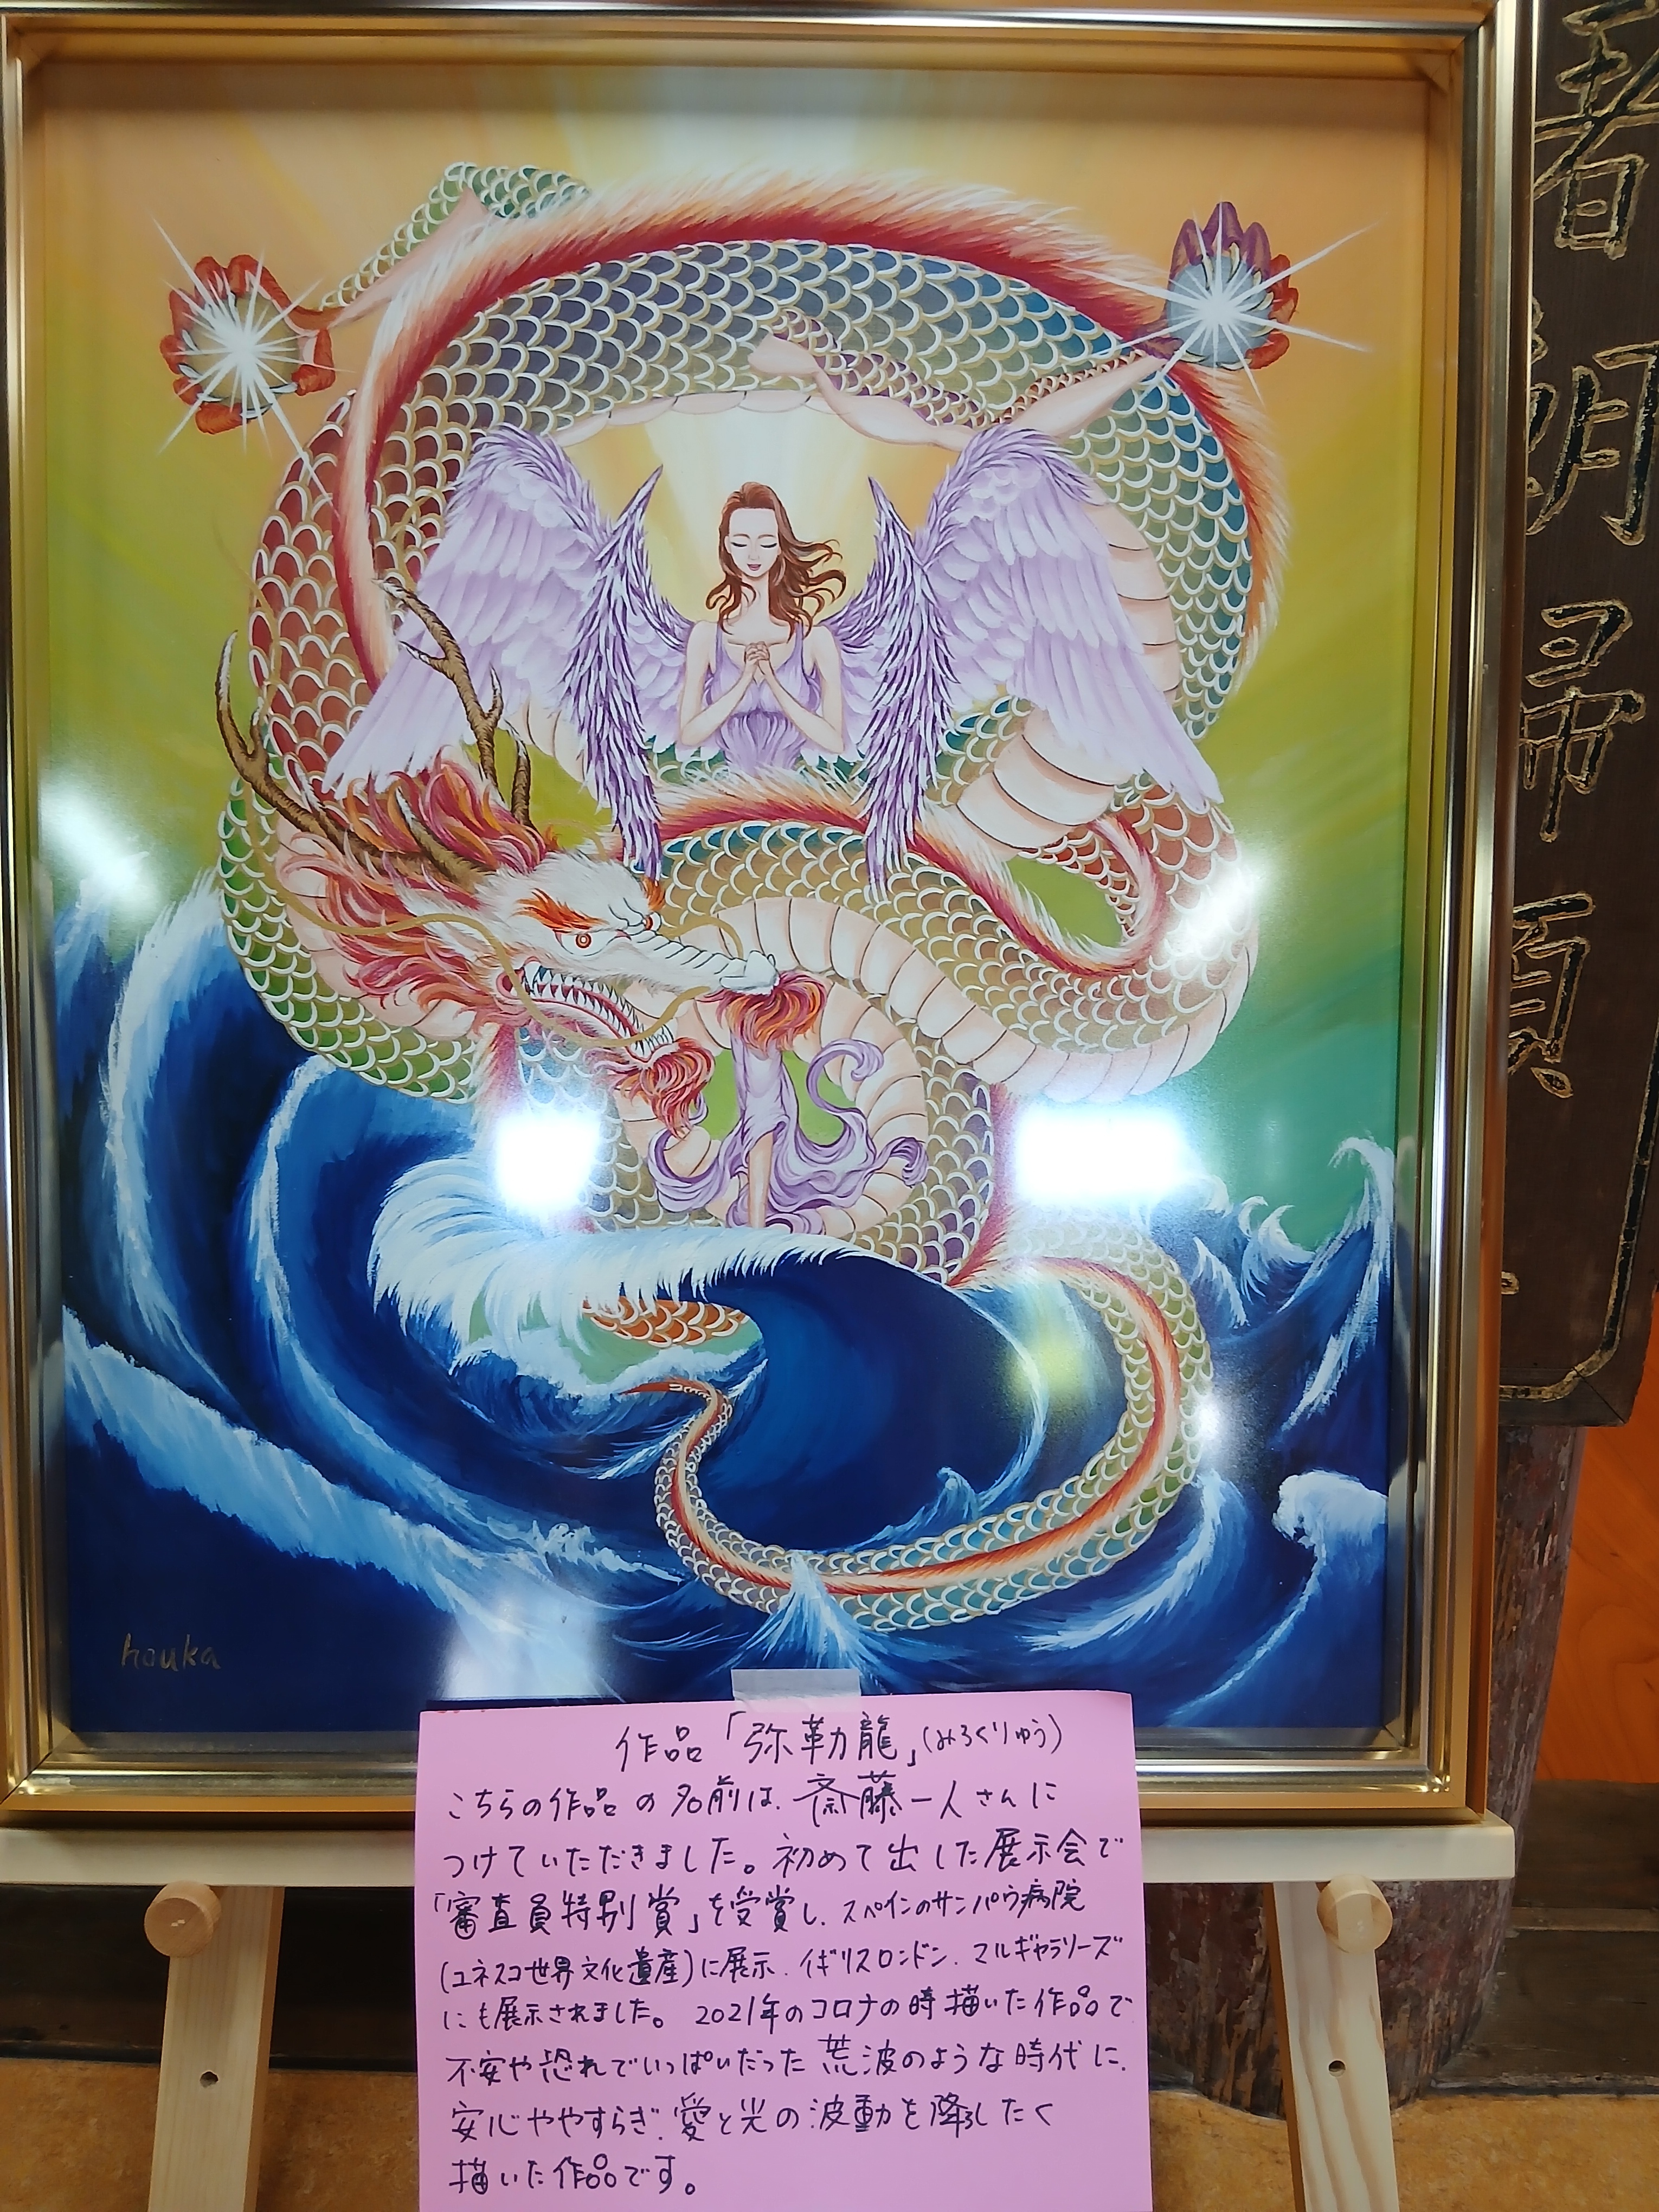 houka
作品「弥勒龍」(みろくりゅう)
こちらの作品の名前は、斎藤一人さんに
つけていただきました。初めて出した展示会で
「審査員特別賞」を受賞し、スペインのサンパウ病院
(ユネスコ世界文化遺産)に展示、イギリスロンドン、マルギャラリーズ
にも展示されました。2021年のコロナの時描いた作品で
不安や恐れでいっぱいだった荒波のような時代に、
安心ややすらぎ、愛と光の波動を降ろしたく
描いた作品です。